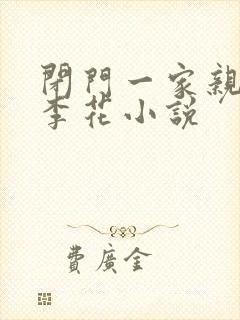 閉門一家親
李花小說
費廣金